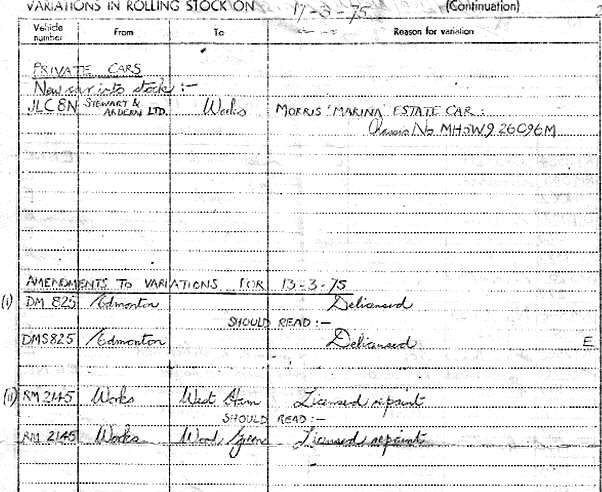 VARIATIONS IN ROLLING STOCK ON 17-3-75 (Continuation)
Vehicle number From To Reason for variation
PRIVATE CARS
New car into stock :-
JLC 8N STEWART & ARDERN LTD. Works MORRIS 'MARINA' ESTATE CAR :
Chassis No MH5W9 26096M
AMENDMENTS TO VARIATIONS FOR 13-3-75
(i) DM 825 Edmonton Delicensed
SHOULD READ :-
DMS825 Edmonton Delicensed E
(ii) RM 2145 Works West Ham Licensed repaint
SHOULD READ :-
RM 2145 Works Wood Green Licensed repaint